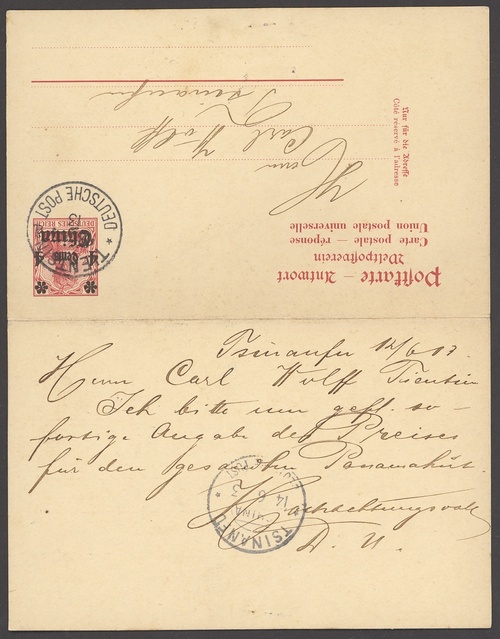 Postkarte — Antwort
Weltpostverein
Carte postale — réponse
Union postale universelle
Nur für die Adresse
Côté réservé à l'adresse
Herrn
Carl Wolff
Tsinanfu
DEUTSCHE POST
TIENTSIN
13
DEUTSCHES REICH
China
4 Cents 4
Tsinanfu 14/6 13
Herrn Carl Wolff Tientsin
Ich bitte um gefl. so-
fortige Angabe des Preises
für den gesandten Panamahut.
Hochachtungsvoll
D. U.
TSINANFU
14 6 13
CHINA